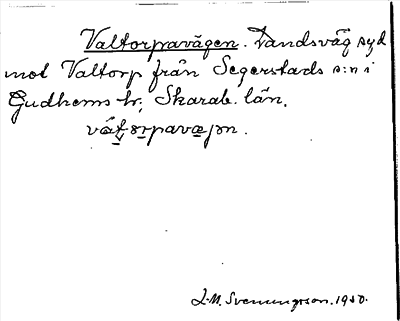 Valtorpavägen. Landsväg syd
mot Valtorp från Segerstads s:n i
Gudhems hr, Skarab. län.
L.M. Svenungsson. 1930.